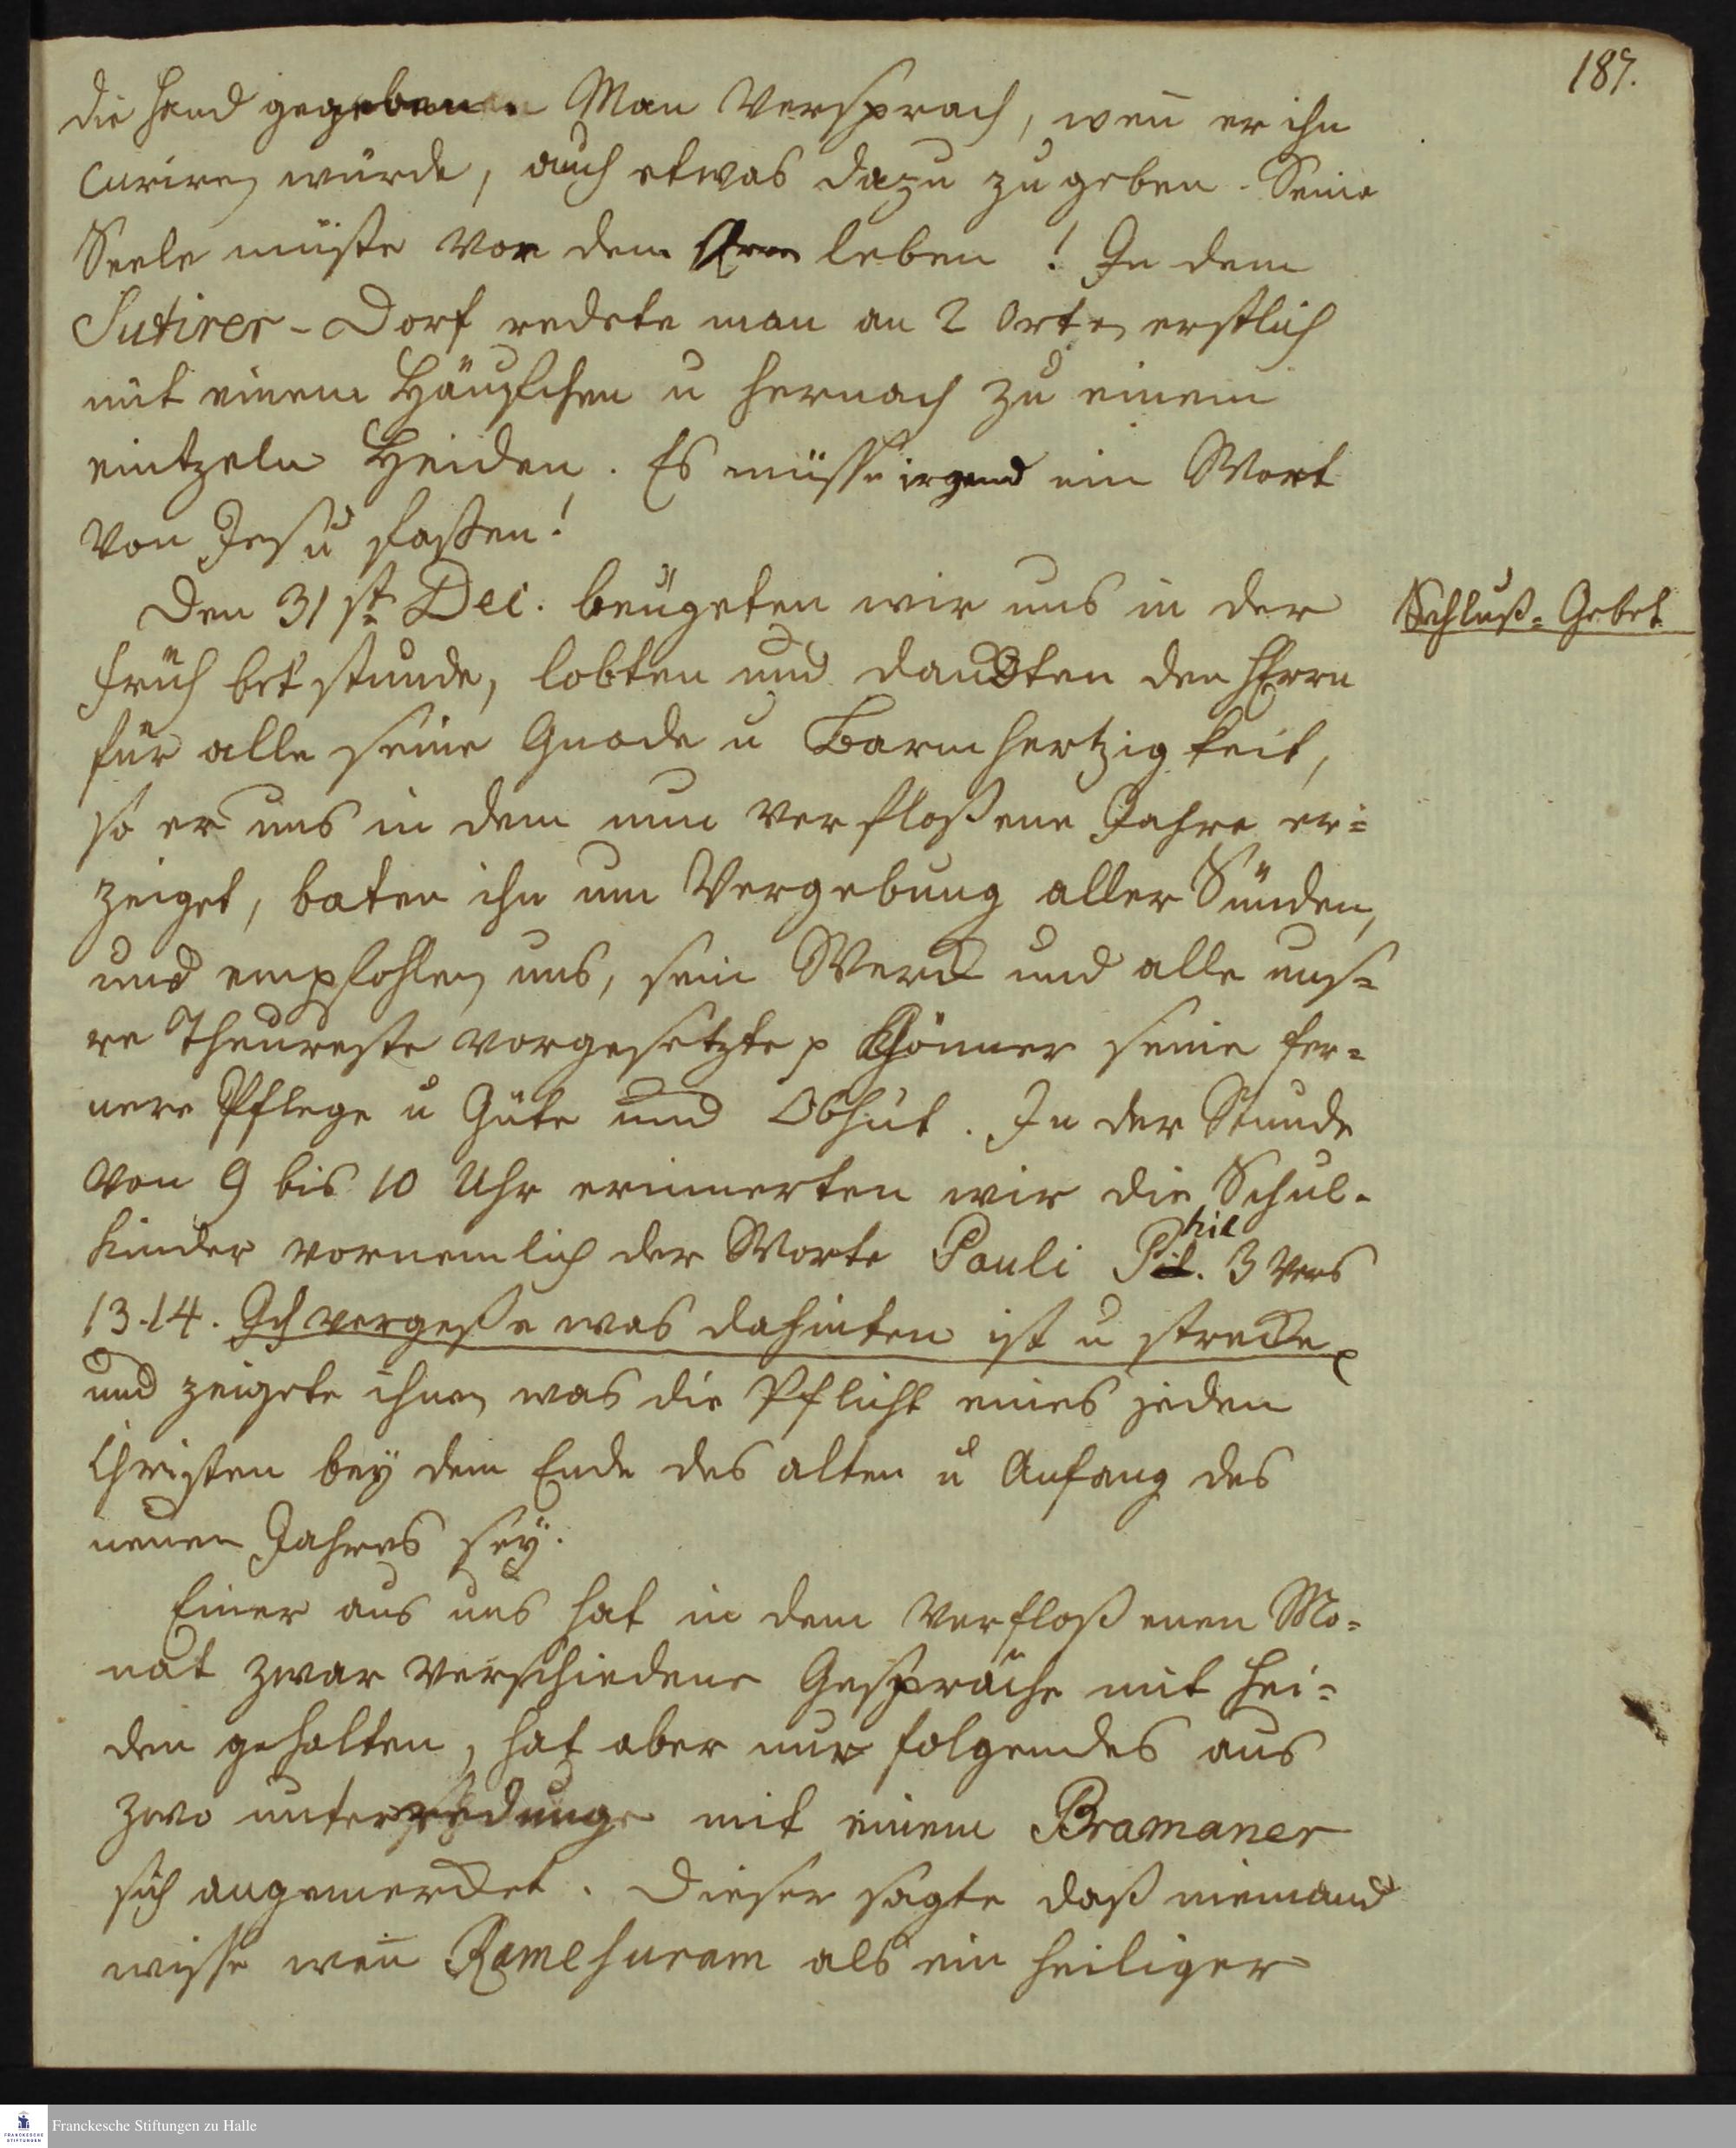 187.
die Hand gegeben. Man Versprach, weñ er ihn
curiren würde, auch etwas dazu zu geben. Seine
Seele müste vor dem HErrn leben! In dem
Sutirer-Dorf redete man an 2 Orten erstlich
mit einem Häufchen u hernach zu einem
eintzeln Heiden. Es müsse irgend ein Wort
von Jesu fassen!
Den 31st Dec. beugeten wir uns in der
Schluß-Gebet
früh betstunde, lobten und danckten den HErrn
für alle seine Gnade u Barmhertzigkeit,
so er uns in dem nun verfloßene Jahre er=
zeiget, baten ihn um Vergebung aller Sünden,
und empfohlen uns, sein Werck und alle uns=
re Theureste vorgesetzte p Gönner seine fer=
nere Pflege u Güte und Obhut. In der Stunde
von 9 bis 10 Uhr erinnerten wir die Schul-
Kinder vornemlich der Worte Pauli Phil. 3 Vers
13.14. Ich vergeße was dahinten ist u strecke p
und zeigete ihnen was die Pflicht eines jeden
Christen bey dem Ende des alten u Anfang des
neuen Jahres sey.
Einer aus uns hat in dem verfloßenen Mo=
nat zwar verschiedene Gespräche mit Hei=
den gehalten, hat aber nur folgendes aus
zwo unterredunge mit einem Bramaner
sich angemercket. Dieser sagte daß niemand
wisse weñ Ramesuram als ein heiliger
Franckesche Stiftungen zu Halle